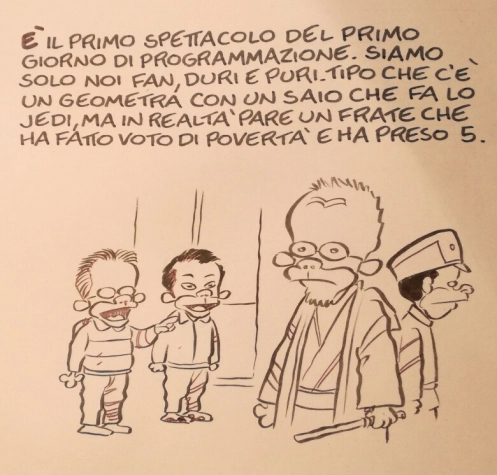 È IL PRIMO SPETTACOLO DEL PRIMO
GIORNO DI PROGRAMMAZIONE. SIAMO
SOLO NOI FAN, DURI E PURI-TIPO CHE C'È
UN GEOMETRA CON UN SAIO CHE FA LO
JEDI, MA IN REALTA' PARE UN FRATE CHE
HA FATTO VOTO DI POVERTA' E HA PRESO 5.